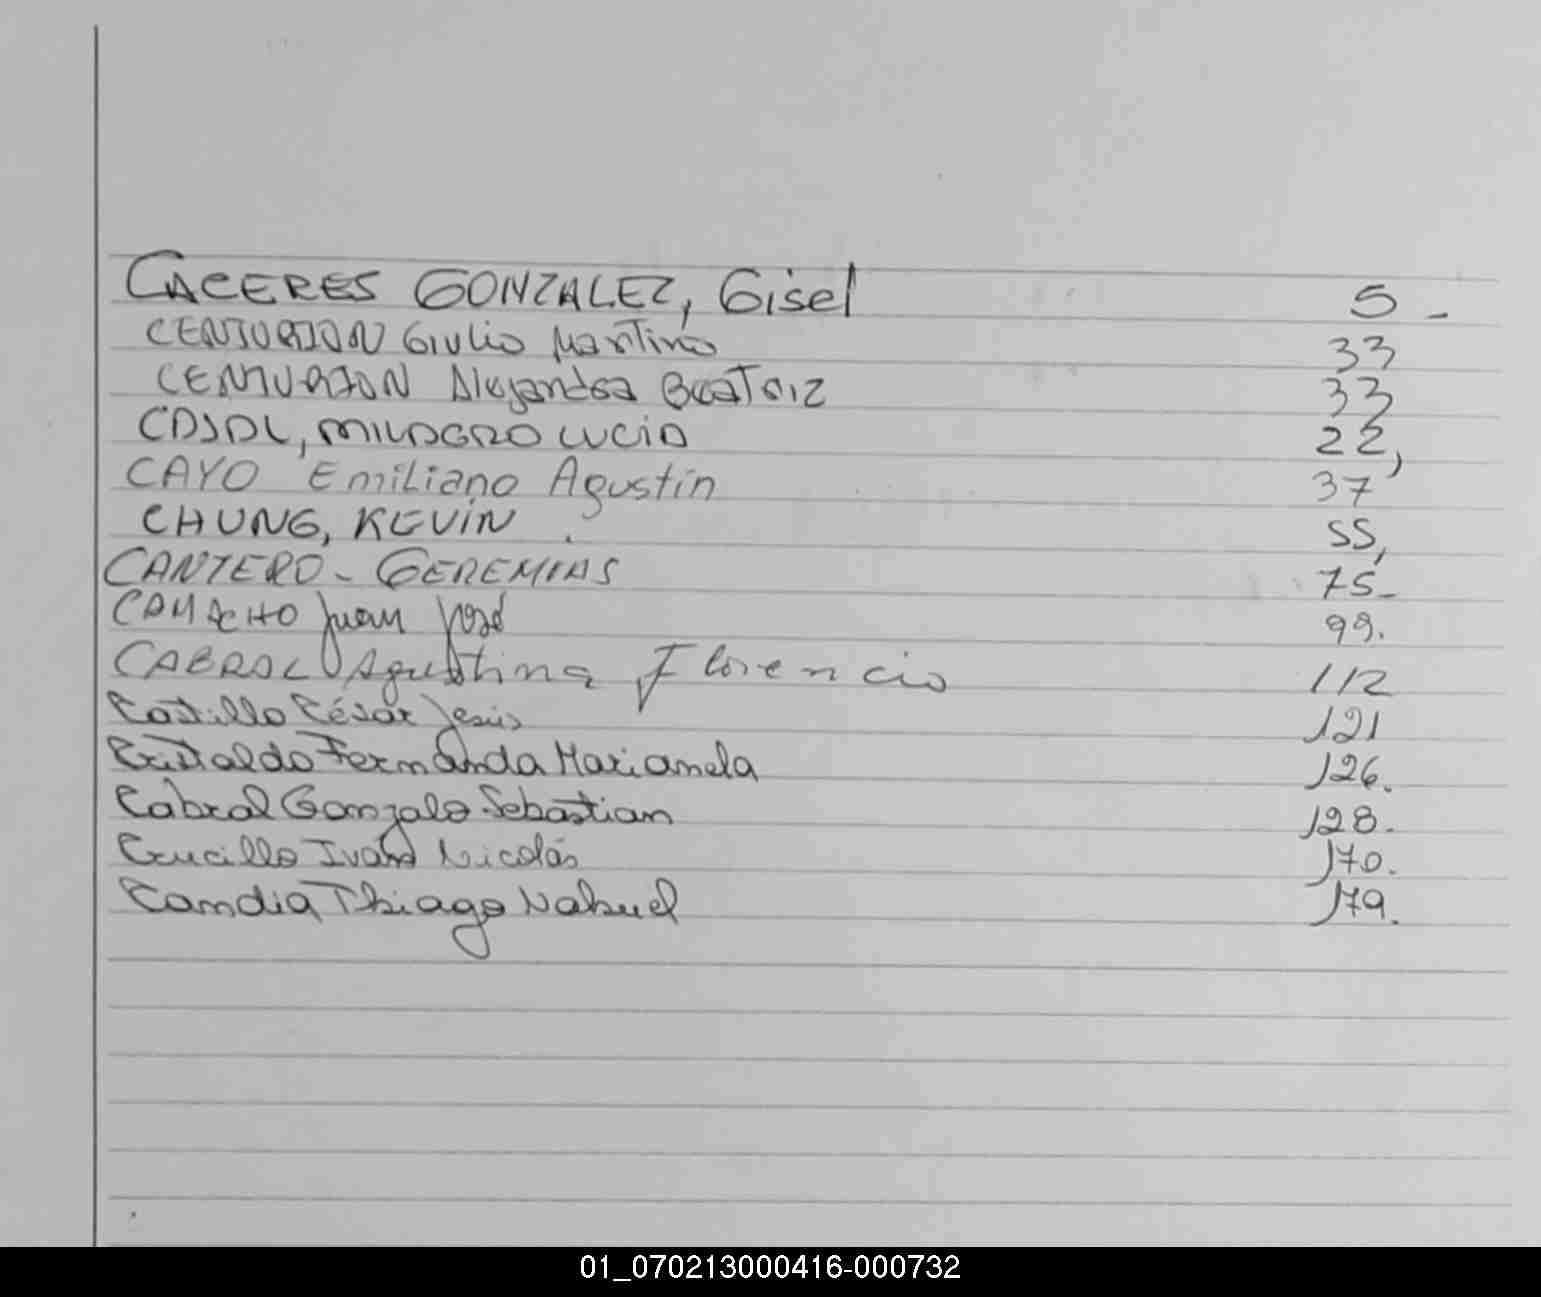 CACERES GONZALEZ, Gisel 5 -
CENTURION Giulio Martino 33
CENTURION Alejandra Beatriz 33
CASAL, MILAGRO LUCIA 22,
CAYO Emiliano Agustín 37
CHUNG, KEVIN. 55,
CANTERO - GEREMIAS 75-
CAMACHO Juan José 99.
CABRAL Agustina Florencia 112
Castillo César Jesús 121
Cristaldo Fernanda Marianela 126.
Cabral Gonzalo Sebastian 128.
Crucillo Ivan Nicolás 170.
Candia Thiago Nahuel 179.
01_070213000416-000732